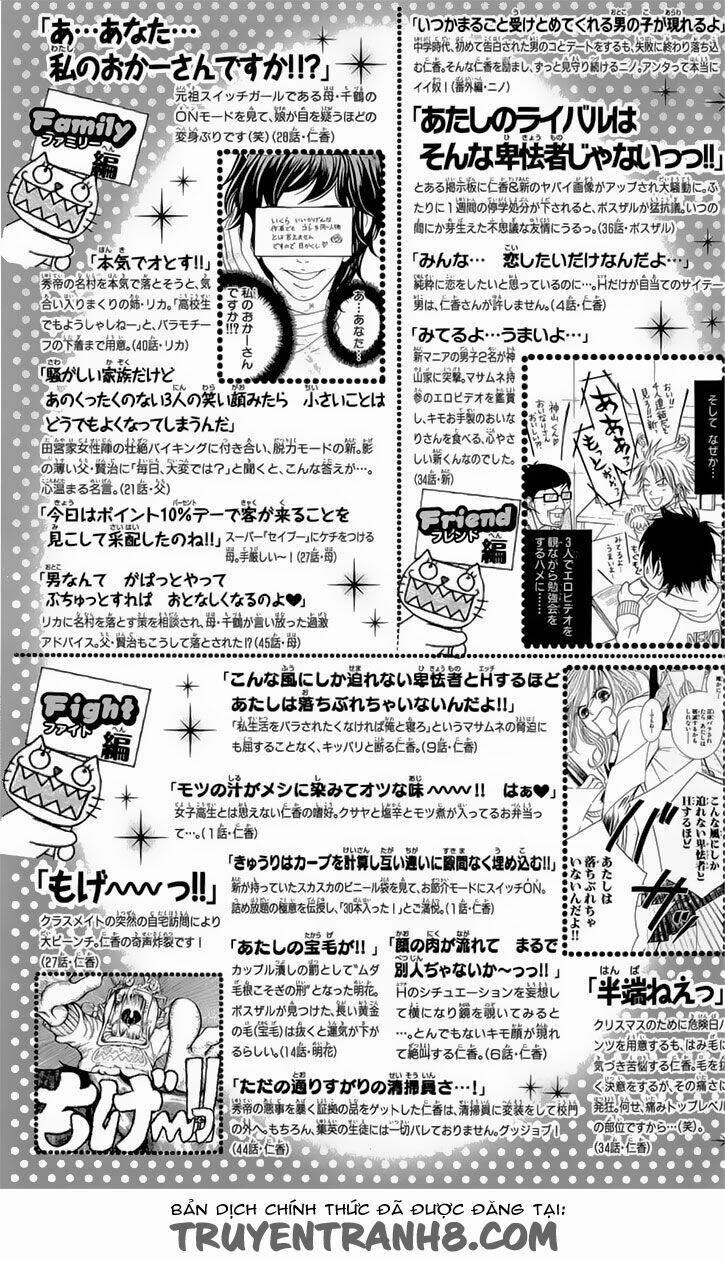 「あ…あなた…
私のおかーさんですか!!?」
元祖スイッチガールである母・千鶴の
ONモードを見て、娘が目を疑うほどの
変身ぶりです(笑)(28話・仁香)
Family
ファミリー編
あ…あなた…
私のおかーさん
ですか!!?
「本気でオとす!!」
秀帝の名村を本気で落とそうと、気
合い入りまくりの姉・リカ。「高校生
でもようしゃしねー」と、バラモチー
フの下着まで用意。(40話・リカ)
「騒がしい家族だけど
あのくったくのない3人の笑い顔みたら 小さいことは
どうでもよくなってしまうんだ」
田宮家女性陣の壮絶バイキングに付き合い、脱力モードの新。影
の薄い父・賢治に「毎日、大変では?」と聞くと、こんな答えが…。
心温まる名言。(21話・父)
「今日はポイント10%デーで客が来ることを
見こして采配したのね!!」スーパー“セイブー”にケチをつける
母。手厳しい〜!(27話・母)
「男なんて がばっとやって
ぶちゅっとすれば おとなしくなるのよ♥」
リカに名村を落とす策を相談され、母・千鶴が言い放った過激
アドバイス。父・賢治もこうして落とされた!?(45話・母)
「いつかまるごと受けとめてくれる男の子が現れるよ」
中学時代、初めて告白された男のコとデートをするも、失敗に終わり落ち込
む仁香。そんな仁香を励まし、ずっと見守り続けるニノ。アンタって本当に
イイ奴!(番外編・ニノ)
「あたしのライバルは
そんな卑怯者じゃないっっ!!」
とある掲示板に仁香&新のヤバイ画像がアップされ大騒動に。ふ
たりに1週間の停学処分が下されると、ボスザルが猛抗議。いつの
間にか芽生えた不思議な友情にうるっ。(36話・ボスザル)
「みんな… 恋したいだけなんだよ…」
純粋に恋をしたいと思っているのに…。Hだけが目当てのサイテー
男は、仁香さんが許しません。(4話・仁香)
「みてるよ…うまいよ…」
新マニアの男子2名が神
山家に突撃。マサムネ持
参のエロビデオを鑑賞
し、キモお手製のおいな
りさんを食べる、心やさ
しい新くんなのでした。
(34話・新)
そして なぜか…
3人でエロビデオを
観ながら勉強会を
するハメに……
NEKO
Friend
フレンド編
Fight
ファイト編
「こんな風にしか迫れない卑怯者とHするほど
あたしは落ちぶれちゃいないんだよ!!」
「私生活をバラされたくなければ俺と寝ろ」というマサムネの脅迫に
も屈することなく、キッパリと断る仁香。(9話・仁香)
こんな風にしか
迫れない卑怯者と
Hするほど
あたしは
落ちぶれちゃ
いないんだよ!!
「モツの汁がメシに染みてオツな味〜〜〜!! はぁ♥」
女子高生とは思えない仁香の嗜好。クサヤと塩辛とモツ煮が入ってるお弁当
って…。(1話・仁香)
「きゅうりはカーブを計算し互い違いに隙間なく埋め込む!!」
新が持っていたスカスカのビニール袋を見て、お節介モードにスイッチON。
詰め放題の極意を伝授し、「30本入った!」とご満悦。(1話・仁香)
「もげ〜〜〜っ!!」
クラスメイトの突然の自宅訪問により
大ピーンチ。仁香の奇声炸裂です!
(27話・仁香)
もげ〜〜っ!!
「あたしの宝毛が!!」
カップル潰しの罰として“ムダ
毛根こそぎの刑”となった明花。
ボスザルが見つけた、長い黄金
の毛(宝毛)は抜くと運気が下が
るらしい。(14話・明花)
「顔の肉が流れて まるで
別人ぢゃないか〜っっ!!」
Hのシチュエーションを妄想し
て横になり鏡を覗いてみると
…。とんでもないキモ顔が現れ
て絶叫する仁香。(6話・仁香)
「ただの通りすがりの清掃員さ…!」
秀帝の悪事を暴く証拠の品をゲットした仁香は、清掃員に変装をして校門
の外へ。もちろん、集英の生徒には一切バレておりません。グッジョブ!
(44話・仁香)
「半端ねえっ
クリスマスのために危険日パ
ンツを用意するも、はみ毛に
気づき苦悩する仁香。毛を抜
く決意をするが、その痛さに
発狂。何せ、痛みトップレベル
の部位ですから…(笑)。
(34話・仁香)
BẢN DỊCH CHÍNH THỨC ĐÃ ĐƯỢC ĐĂNG TẠI:
TRUYENTRANH8.COM